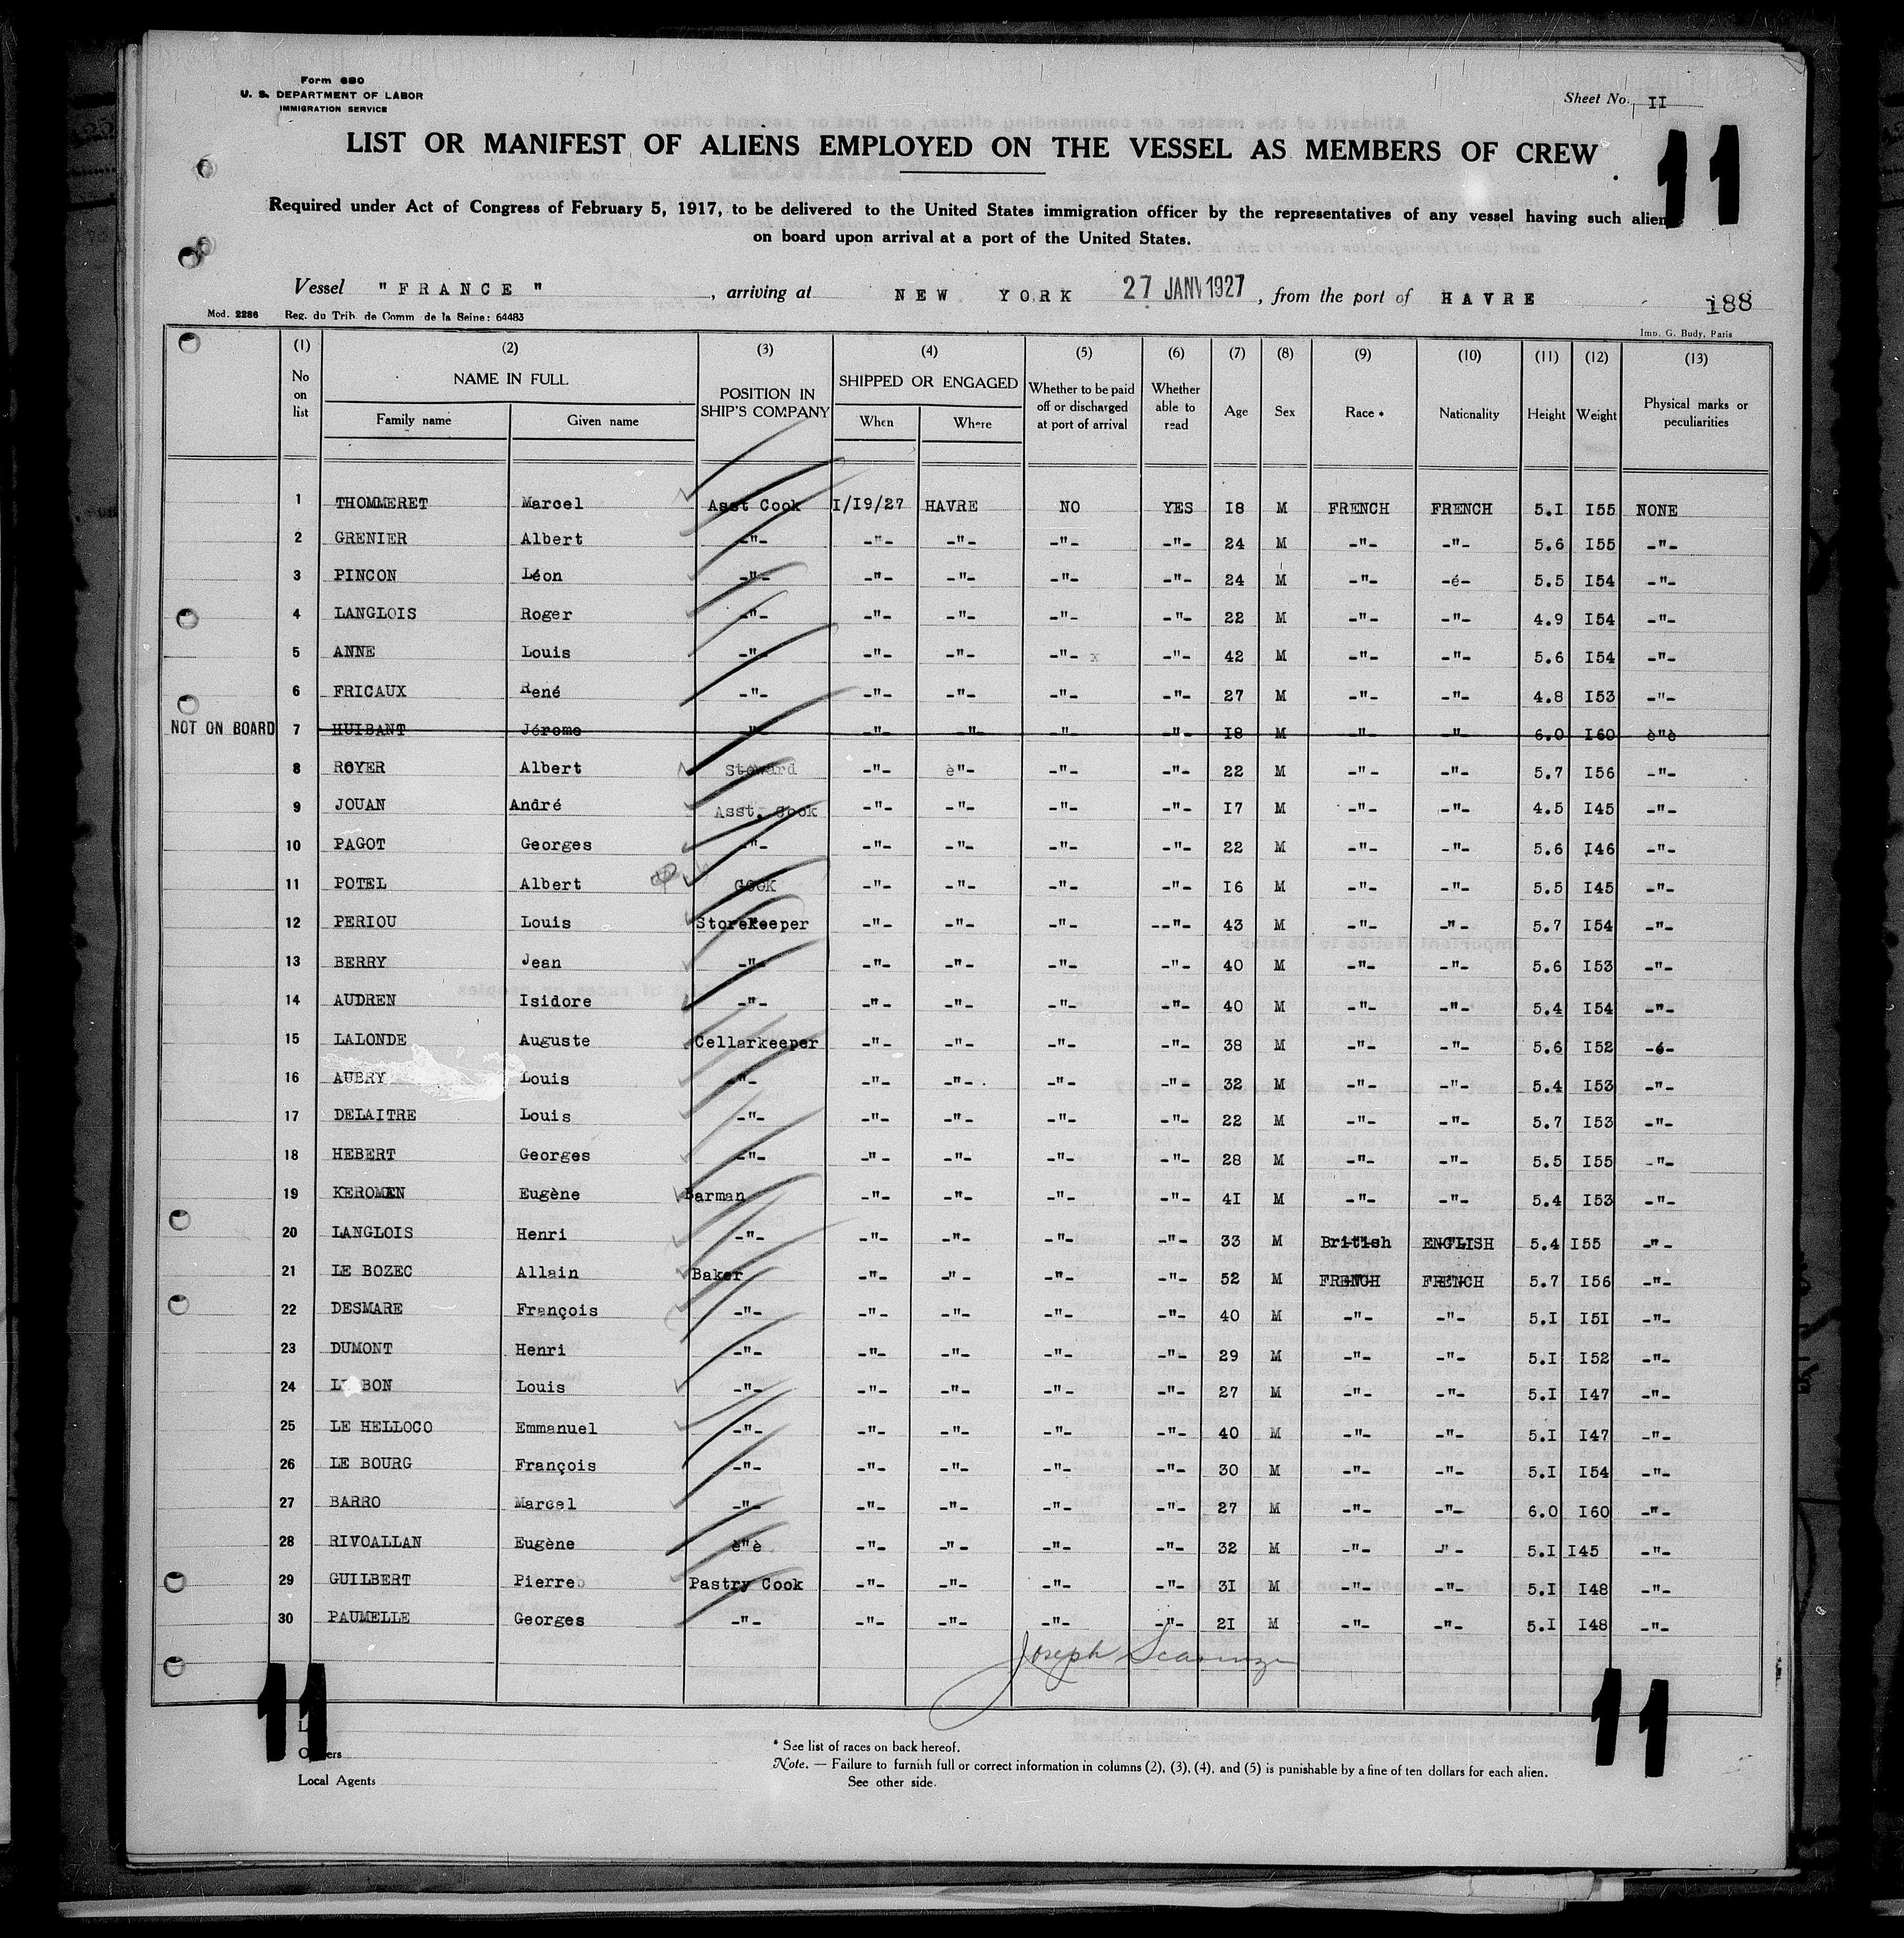 Form 680
U. S. DEPARTMENT OF LABOR
IMMIGRATION SERVICE
Sheet No. II
LIST OR MANIFEST OF ALIENS EMPLOYED ON THE VESSEL AS MEMBERS OF CREW
11
Required under Act of Congress of February 5, 1917, to be delivered to the United States immigration officer by the representatives of any vessel having such alien
on board upon arrival at a port of the United States.
Vessel "FRANCE", arriving at NEW YORK 27 JANV 1927, from the port of HAVRE 188
Mod. 2286 Reg. du Trib. de Comm de la Seine: 64483
Imp. G. Budy, Paris
(1) (2) (3) (4) (5) (6) (7) (8) (9) (10) (11) (12) (13)
No on list NAME IN FULL POSITION IN SHIP'S COMPANY SHIPPED OR ENGAGED Whether to be paid off or discharged at port of arrival Whether able to read Age Sex Race * Nationality Height Weight Physical marks or peculiarities
Family name Given name When Where
1 THOMMERET Marcel Asst Cook I/I9/27 HAVRE NO YES I8 M FRENCH FRENCH 5.I I55 NONE
2 GRENIER Albert -"- -"- -"- -"- -"- 24 M -"- -"- 5.6 I55 -"-
3 PINCON Léon -"- -"- -"- -"- -"- 24 M -"- -é- 5.5 I54 -"-
4 LANGLOIS Roger -"- -"- -"- -"- -"- 22 M -"- -"- 4.9 I54 -"-
5 ANNE Louis -"- -"- -"- -"- x -"- 42 M -"- -"- 5.6 I54 -"-
6 FRICAUX René -"- -"- -"- -"- -"- 27 M -"- -"- 4.8 I53 -"-
NOT ON BOARD 7 HUIBANT Jérome -"- -"- -"- -"- -"- I8 M -"- -"- 6.0 I60 è"è
8 ROYER Albert Steward -"- è"- -"- -"- 22 M -"- -"- 5.7 I56 -"-
9 JOUAN André Asst. Cook -"- -"- -"- -"- I7 M -"- -"- 4.5 I45 -"-
10 PAGOT Georges -"- -"- -"- -"- -"- 22 M -"- -"- 5.6 I46 -"-
11 POTEL Albert COOK -"- -"- -"- -"- I6 M -"- -"- 5.5 I45 -"-
12 PERIOU Louis Storekeeper -"- -"- -"- --"- 43 M -"- -"- 5.7 I54 -"-
13 BERRY Jean -"- -"- -"- -"- -"- 40 M -"- -"- 5.6 I53 -"-
14 AUDREN Isidore -"- -"- -"- -"- -"- 40 M -"- -"- 5.4 I54 -"-
15 LALONDE Auguste Cellarkeeper -"- -"- -"- -"- 38 M -"- -"- 5.6 I52 -é-
16 AUBRY Louis -"- -"- -"- -"- -"- 32 M -"- -"- 5.4 I53 -"-
17 DELAITRE Louis -"- -"- -"- -"- -"- 22 M -"- -"- 5.7 I53 -"-
18 HEBERT Georges -"- -"- -"- -"- -"- 28 M -"- -"- 5.5 I55 -"-
19 KEROMEN Eugène Barman -"- -"- -"- -"- 4I M -"- -"- 5.4 I53 -"-
20 LANGLOIS Henri -"- -"- -"- -"- -"- 33 M British ENGLISH 5.4 I55 -"-
21 LE BOZEC Allain Baker -"- -"- -"- -"- 52 M FRENCH FRENCH 5.7 I56 -"-
22 DESMARE François -"- -"- -"- -"- -"- 40 M -"- -"- 5.I I5I -"-
23 DUMONT Henri -"- -"- -"- -"- -"- 29 M -"- -"- 5.I I52 -"-
24 BON Louis -"- -"- -"- -"- -"- 27 M -"- -"- 5.I I47 -"-
25 LE HELLOCO Emmanuel -"- -"- -"- -"- -"- 40 M -"- -"- 5.I I47 -"-
26 LE BOURG François -"- -"- -"- -"- -"- 30 M -"- -"- 5.I I54 -"-
27 BARRO Marcel -"- -"- -"- -"- -"- 27 M -"- -"- 6.0 I60 -"-
28 RIVOALLAN Eugène è"è -"- -"- -"- -"- 32 M -"- -"- 5.I I45 -"-
29 GUILBERT Pierre Pastry Cook -"- -"- -"- -"- 3I M -"- -"- 5.I I48 -"-
30 PAUMELLE Georges -"- -"- -"- -"- -"- 2I M -"- -"- 5.I I48 -"-
Joseph
11 11
Local Agents
* See list of races on back hereof.
Note. — Failure to furnish full or correct information in columns (2), (3), (4), and (5) is punishable by a fine of ten dollars for each alien.
See other side.